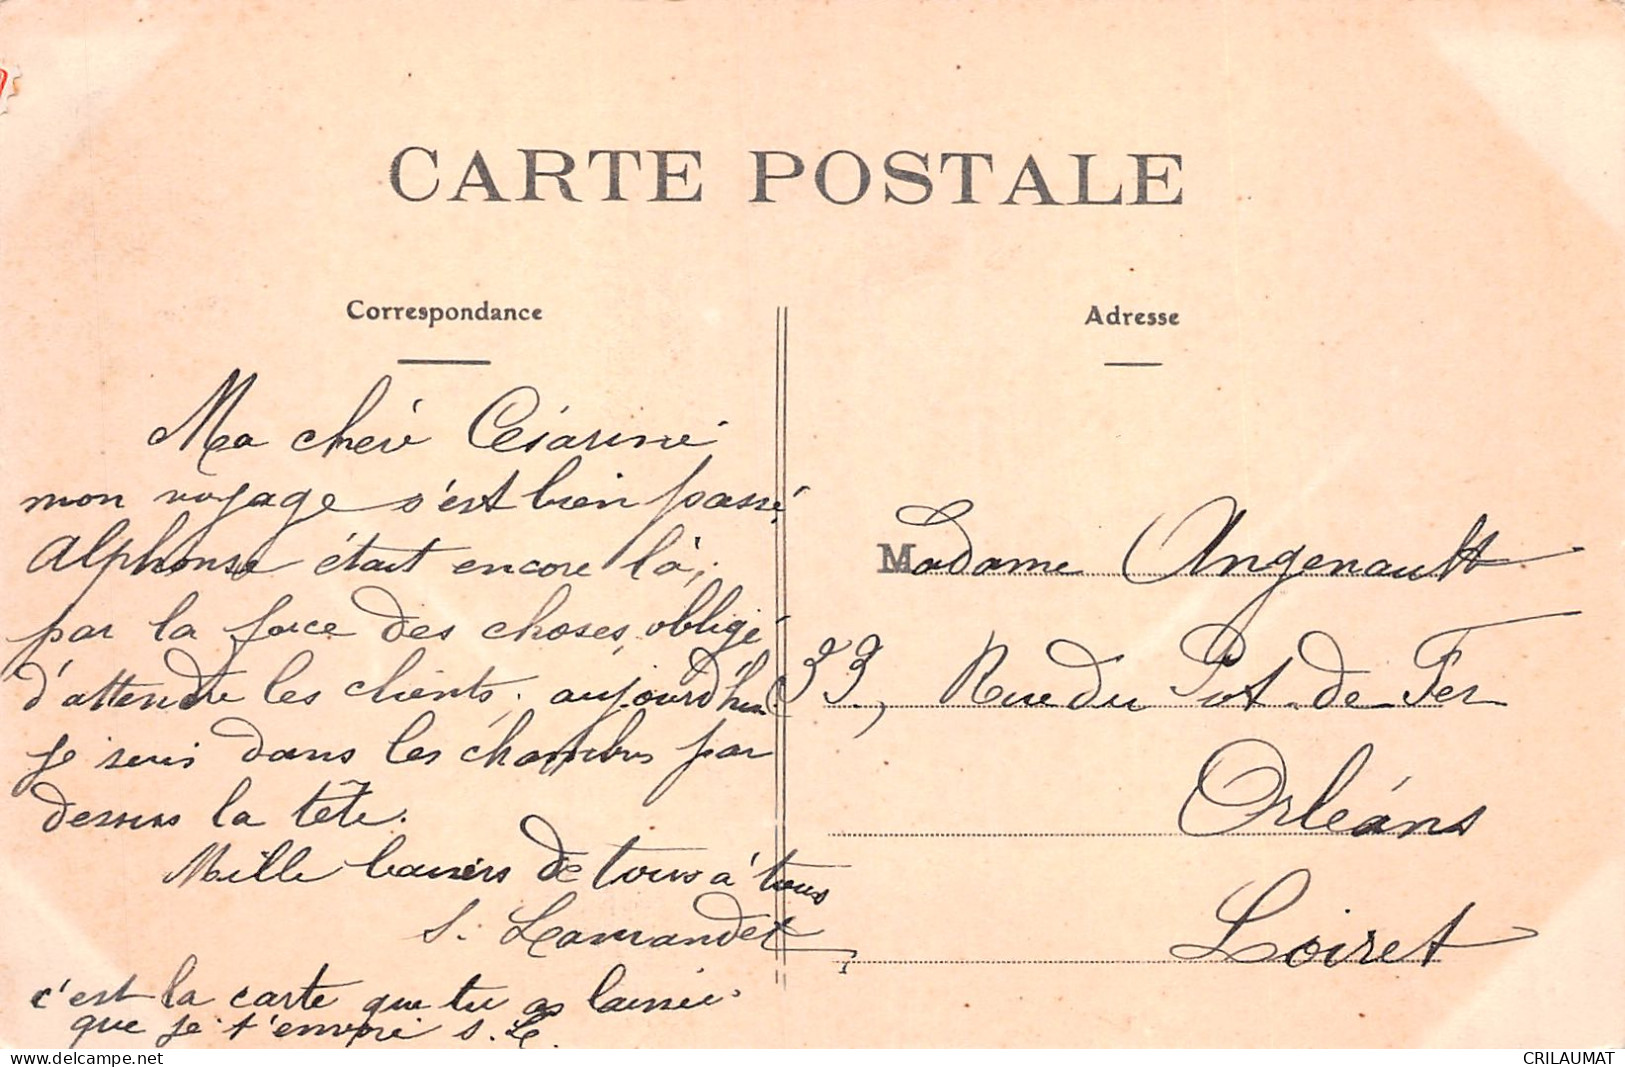 CARTE POSTALE
Correspondance
Adresse
Ma chère Césarine
mon voyage s'est bien passé,
Alphonse était encore là,
par la force des choses, obligé
d'attendre les clients, aujourd'hui
je suis dans les chambres par
dessus la tête.
Mille baisers de tous à tous
S. Lamandet
c'est la carte que tu as laissée
que je t'envoie S. L.
Madame Angenault
33, Rue du Pot-de-Fer
Orléans
Loiret
delcampe.net
CRILAUMAT